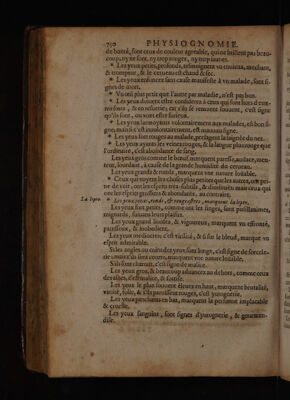 790 PHYSIOGNOMIE.
de bonté, sont ceux de couleur agreable, qui ne luisent pas beau-
coup, ny ne sont, ny trop rouges, ny trop iaunes.
* Les yeux petits, profonds, tesmoignent vn enuieux, meschant,
& trompeur, & le cerueau est chaud & sec.
* Les yeux enfoncez sans cause manifeste à vn malade, sont si-
gnes de mort.
* Vn œil plus petit que l'autre par maladie, n'est pas bon.
* Les yeux doiuent estre considerez à ceux qui sont hors d'en-
& en resuerie; car s'ils se remuent souuent, c'est signe
qu'ils sont, ou vont estre furieux.
* Les yeux larmoyans volontairement aux malades, est bon si-
gne, mais si c'est inuolontairement, est mauuais signe.
* Les yeux fort rouges au malade, presagent la saignée du nez.
* Les yeux ayans les veines rouges, & la langue plus rouge que
l'ordinaire, c'est abondance de sang.
Les yeux gros comme le bœuf, marquent paresse, audace, men-
teur, lourdaut, à cause de la grande humidité du cerueau.
Les yeux grands & ronds, marquent vne nature louable.
* Ceux qui voyent les choses plus petites que les autres, ont pei-
ne de voir, ont les esprits trop subtils, & dissoluts mais ceux qui
ont les esprits grossiers & abondants, au contraire.
La lepre. * Les yeux secs, ronds, & rougeastres, marquent la lepre.
Les yeux fort petits, comme ont les singes, sont pusillanimes,
mignards, suiuans leurs plaisirs.
Les yeux grand luisans, & vigoureux, marquent vn effronté,
paresseux, & indolent.
Les yeux mediocres c'est vieillié, & si sur le bleuë, marque vn
esprit admirable.
Si les angles ou coins des yeux sont longs, c'est signe de sorcele-
rie; mais s'ils sont cours, marquent vne nature louable.
S'ils sont charnus, c'est signe de malice.
Les yeux gros, & beaucoup aduancez au dehors, comme ceux
des asnes, c'est malice, & sottise.
Les yeux le plus souuent éleuez en haut, marquent brutalité,
vanité, folie, & s'ils paroissent rouges, c'est yurognerie.
Les yeux panchants en bas, marquent la personne implacable
& cruelle.
Les yeux sanguins, sont signes d'yurognerie, & gourman-
dise.